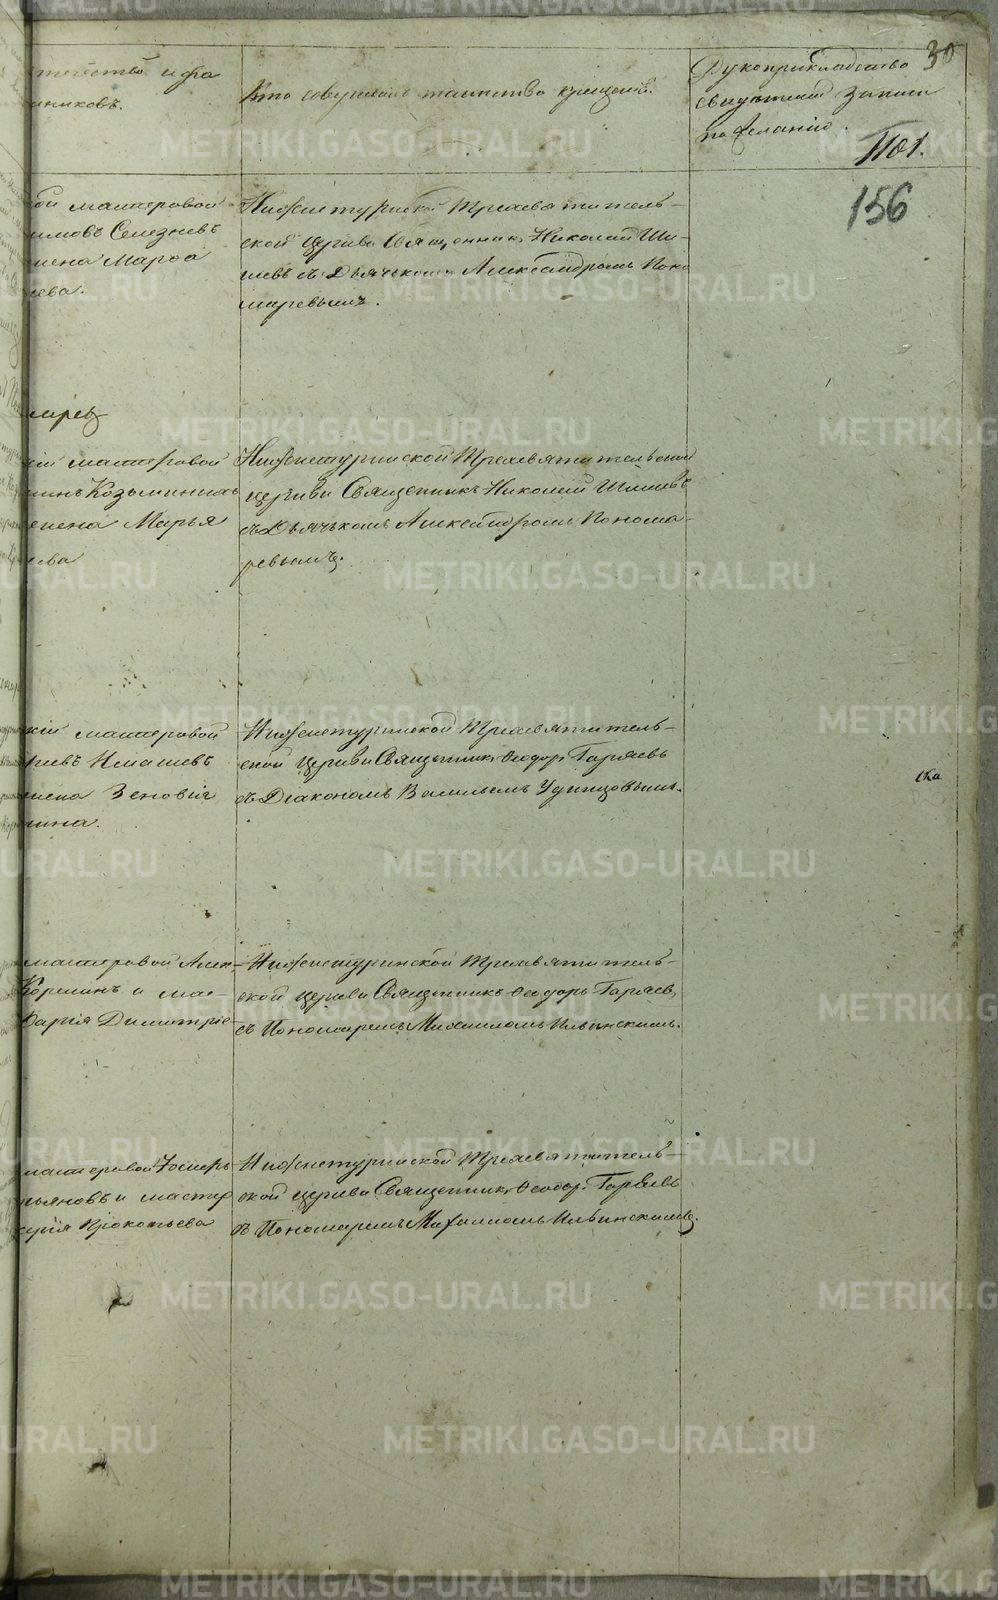 30
Кто совершалъ таинство крещенія.
Рукоприкладство
свидѣтелей записи
по желанію.
1101.
156
мастеровой
имовъ Селезневъ
жена Марфа
ева.
Нижнетуринской Трехсвятитель-
ской церкви Священникъ Николай Ши-
шевъ съ Дьячкомъ Александромъ Поно
маревымъ.
мрец
кій мастеровой
Козьминыхъ
жена Марья
ева
Нижнетуринской Трехсвятительской
церкви Священникъ Николай Шишевъ
съ Дьячкомъ Александромъ Понома-
ревымъ.
кій мастеровой
жена Зеновія
нина.
Нижнетуринской Трехсвятитель-
ской церкви Священникъ Ѳеодоръ Гаряевъ
съ Діакономъ Васильемъ Удинцовымъ.
мастеровой Алек-
Корелинъ и мас-
Дарія Димитріе-
Нижнетуринской Трехсвятитель-
ской церкви Священникъ Ѳеодоръ Гаряевъ
съ Пономаремъ Михаиломъ Ильинскимъ.
мастеровой
ьяновъ и мастер
Прокопьева
Нижнетуринской Трехсвятитель-
ской церкви Священникъ Ѳеодоръ Гаряевъ
съ Пономаремъ Михаиломъ Ильинскимъ.
METRIKI.GASO-URAL.RU